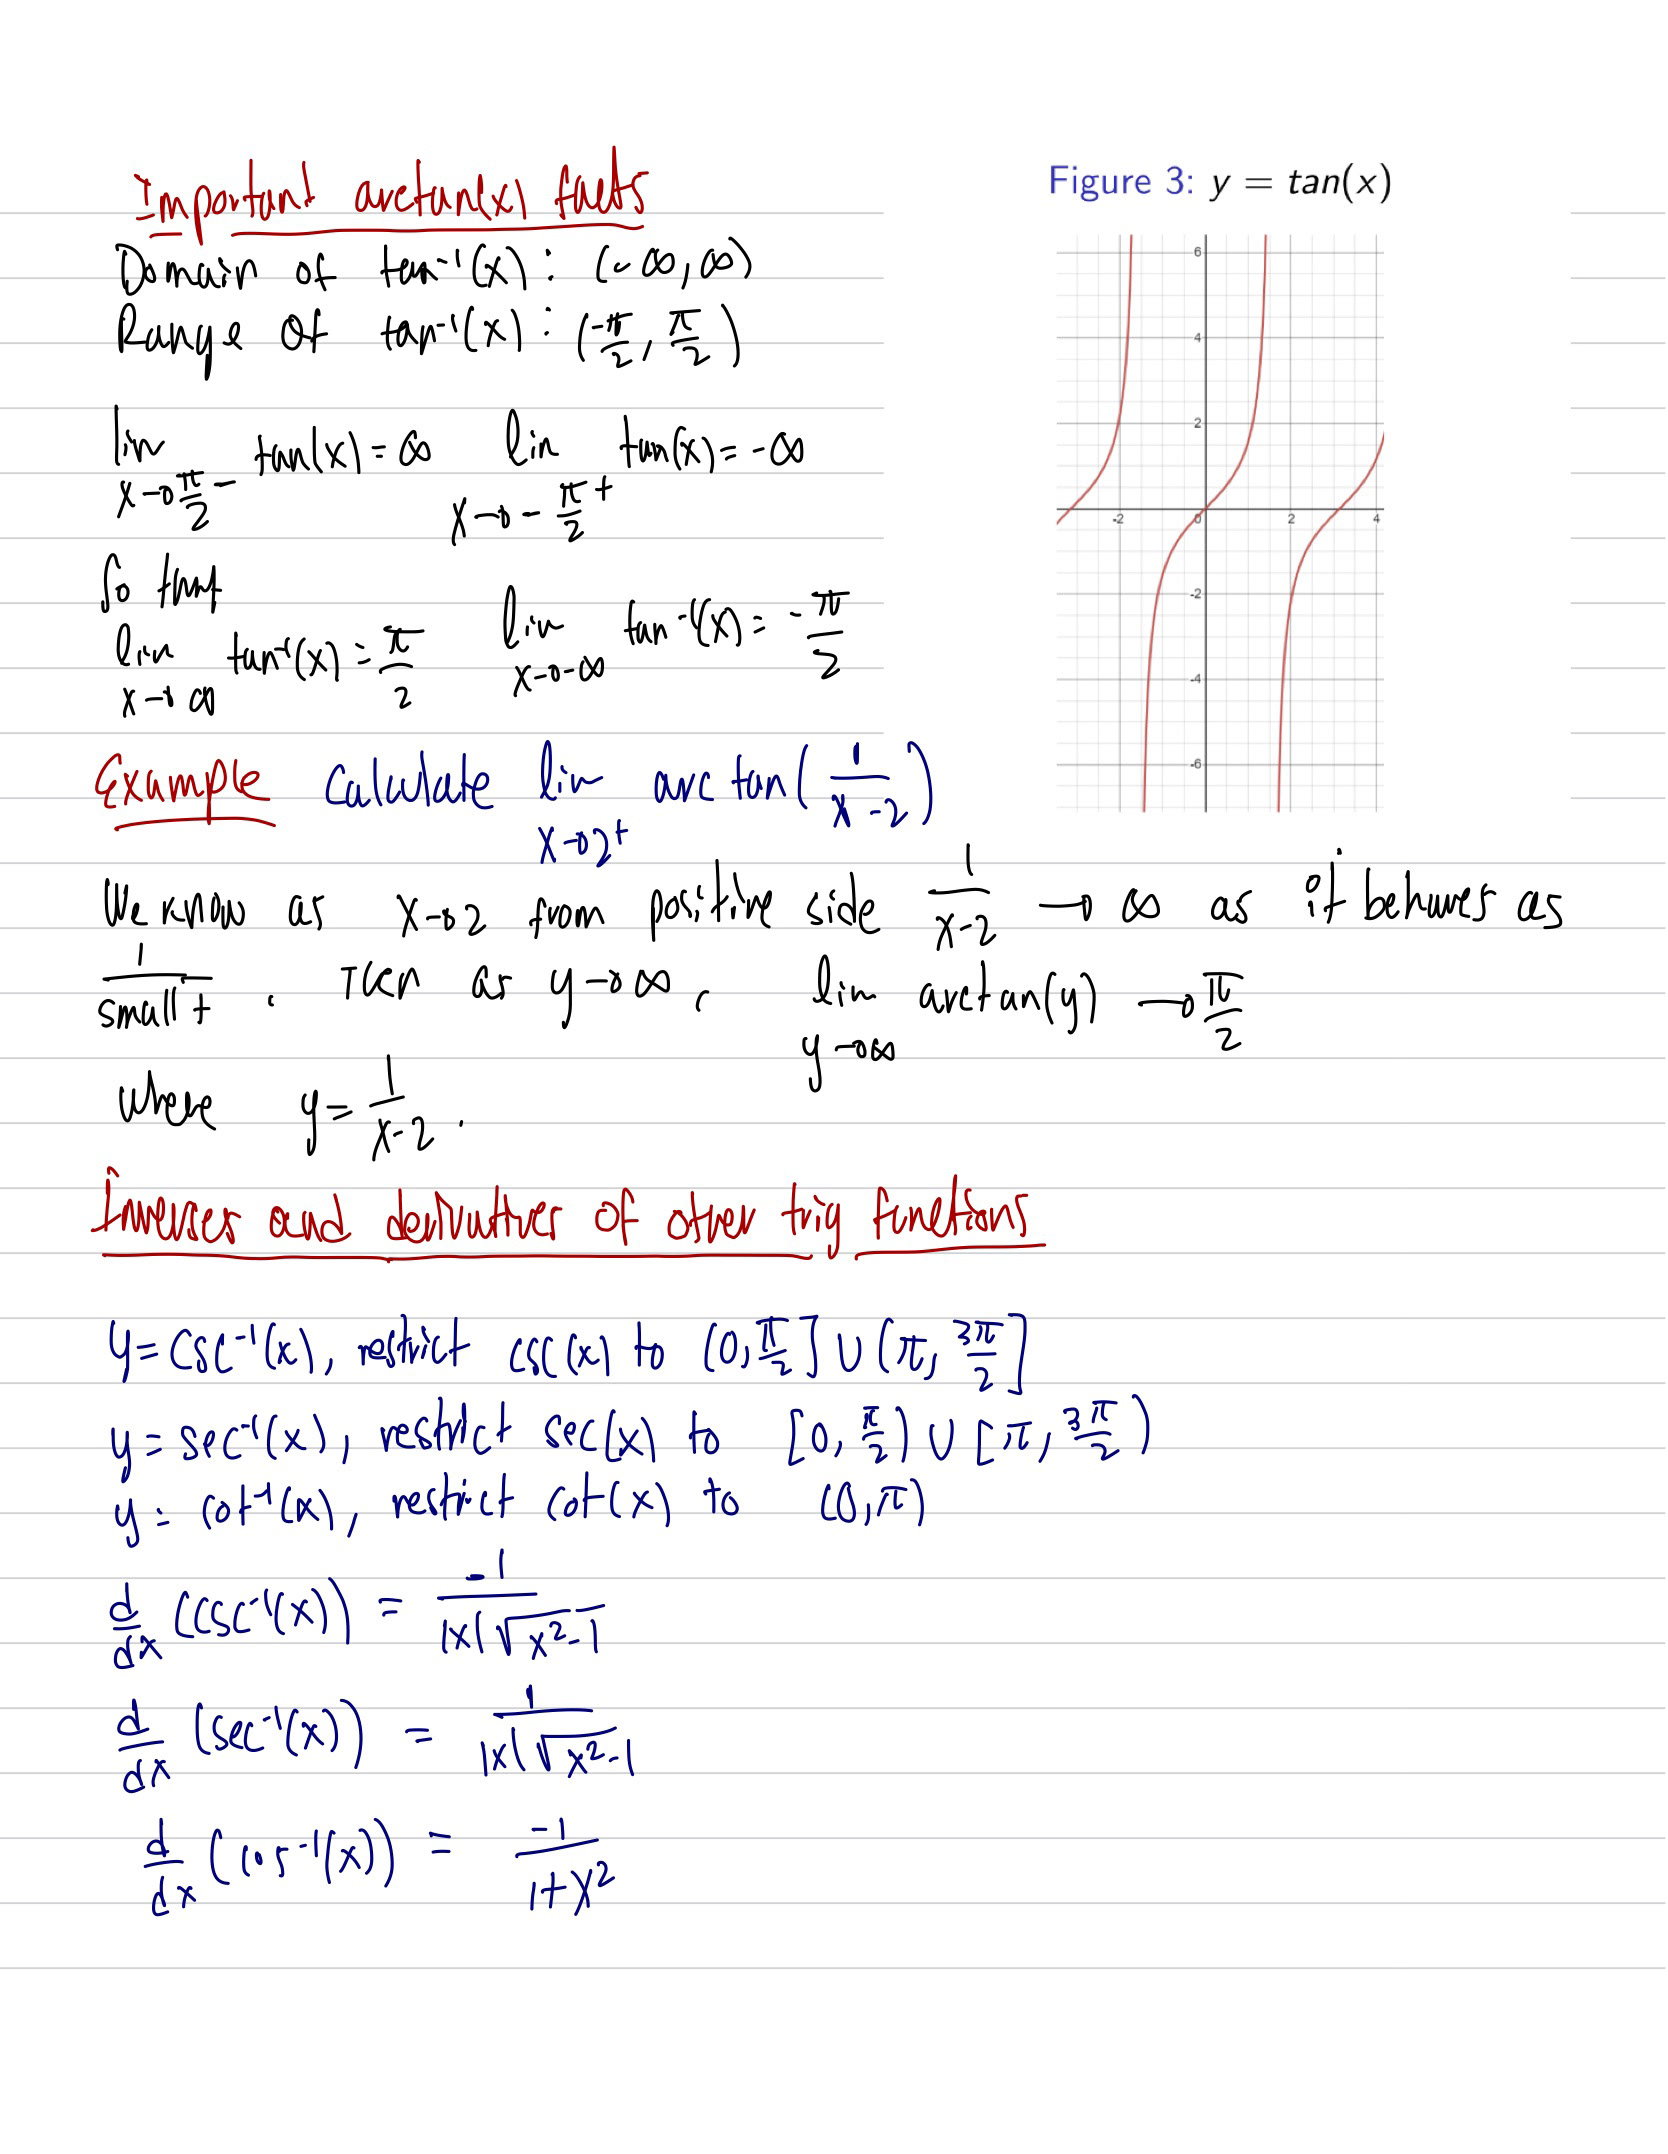 Important arctan(x) facts
Figure 3: y = tan(x)
Domain of tan⁻¹(x): (-∞, ∞)
Range of tan⁻¹(x): (-π/2, π/2)
6
4
2
-2 0 2 4
-2
-4
-6
lim x→π/2⁻ tan(x) = ∞ lim x→-π/2⁺ tan(x) = -∞
So that
lim x→∞ tan⁻¹(x) = π/2 lim x→-∞ tan⁻¹(x) = -π/2
Example Calculate lim x→2⁺ arctan(1/(x-2))
We know as x→2 from positive side 1/(x-2) → ∞ as it behaves as
1/small+. Then as y→∞, lim y→∞ arctan(y) → π/2
where y = 1/(x-2).
Inverses and derivatives of other trig functions
y = csc⁻¹(x), restrict csc(x) to (0, π/2] ∪ (π, 3π/2]
y = sec⁻¹(x), restrict sec(x) to [0, π/2) ∪ [π, 3π/2)
y = cot⁻¹(x), restrict cot(x) to (0, π)
d/dx (csc⁻¹(x)) = -1/(|x|√(x²-1))
d/dx (sec⁻¹(x)) = 1/(|x|√(x²-1))
d/dx (cos⁻¹(x)) = -1/(1+x²)